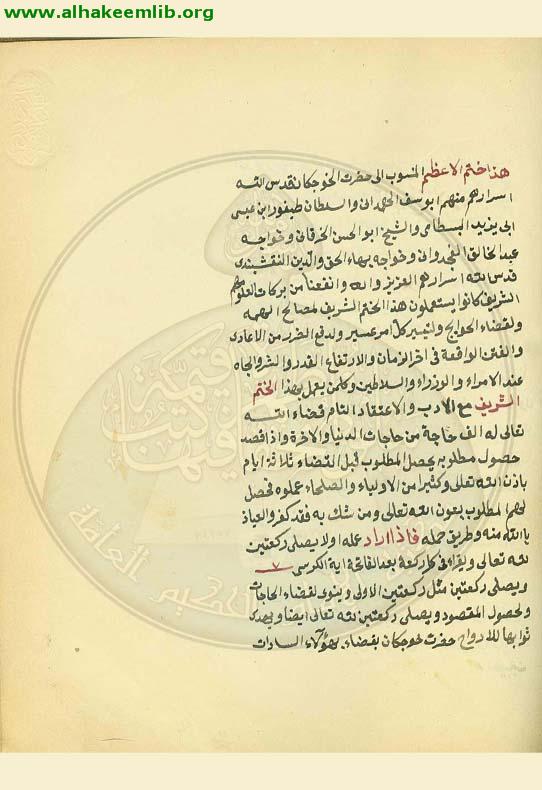 www.alhakeemlib.org
هذا ختم الاعظم المنسوب الى حضرت الخوجكان قدس الله
اسرارهم منهم ابو يوسف الهمدانى والسلطان طيفور ابن عيسى
ابى يزيد البسطامى والشيخ ابو الحسن الخرقانى وخواجه
عبد الخالق الغجدوانى وخواجه بهاء الحق والدين النقشبندى
قدس الله اسرارهم العزيز وانفعنا من بركات
الشريف كانوا يستعملون هذا الختم الشريف لمصالح المهمه
ولقضاء الحوايج ولتيسير كل امر عسير ولدفع الضرر من الاعادى
والفتن الواقعة فى اخر الزمان والارتفاع القدر والشر والجاه
عند الامراء والوزراء والسلاطين وكلمن يعمل بهذا الختم
الشريف مع الادب والاعتقاد التام قضاء الله
تعالى له الف حاجة من حاجات الدنيا والاخرة واذا قصد
حصول مطلوبه يحصل المطلوب قبل انقضاء ثلاثة ايام
باذن الله تعالى وكثيرا من الاولياء والصلحاء عملوه فحصل
لهم المطلوب بعون الله تعالى ومن شك به فقد كفر والعياذ
بالله منه وطريق عمله فاذا اراد عمله اولا يصلى ركعتين
لله تعالى ويقراء فى كل ركعة بعد الفاتحة اية الكرسى ٧
ويصلى ركعتين مثل ركعتين الاولى وينوى لقضاء الحاجات
ولحصول المقصود ويصلى ركعتين لله تعالى ايضا ويهدى
ثوابها للارواح حضرت خوجكان بقضاء بهؤلاء السادات